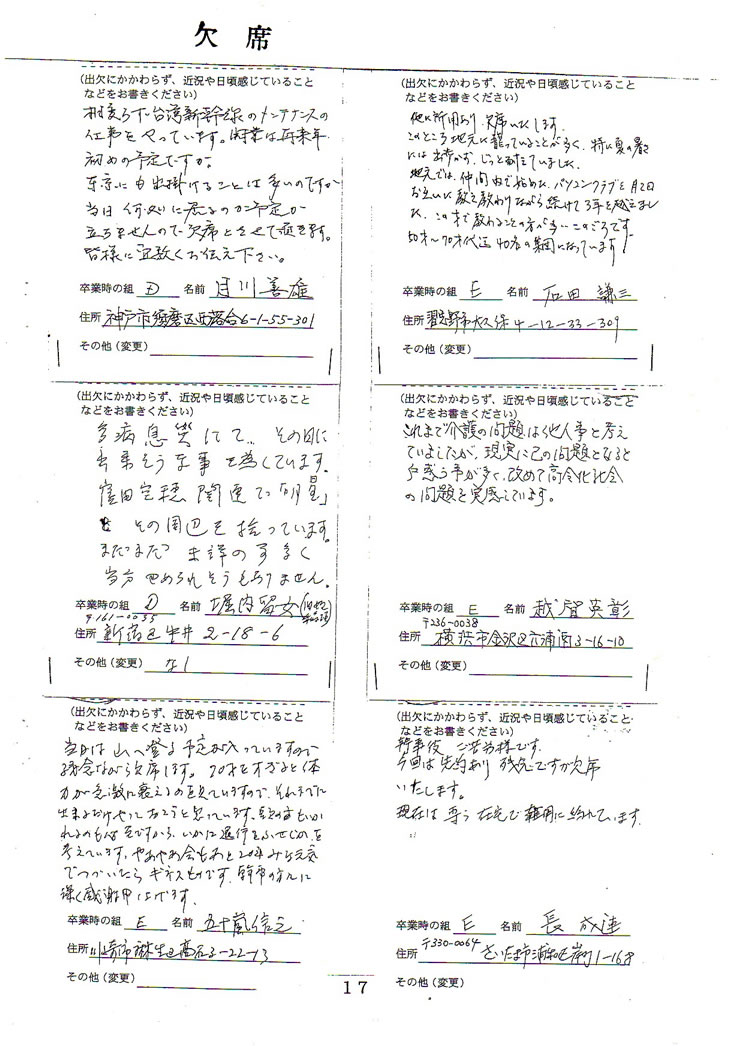 欠 席
(出欠にかかわらず、近況や日頃感じていること
などをお書きください)
台湾新幹線のメンテナンスの
仕事をやっています。開業は再来年
初めの予定ですが。
東京にも出掛けることは多いのですが
当日 何処に居るのか予定が
立ちませんので欠席とさせて頂きます。
皆様に宜敷くお伝え下さい。
卒業時の組 D 名前 月川 善雄
住所 神戸市須磨区西落合6-1-55-301
その他(変更)
(出欠にかかわらず、近況や日頃感じていること
などをお書きください)
他に所用あり 欠席いたします。
このところ地元に籠っていることが多く、特に夏の暑さ
には出歩かず、じっと耐えていました。
地元では、仲間内で始めた パソコンクラブを月2日
お互いに教え教わりながら続けて3年を越えまし
た。この才で教わることの方が多いこのごろです。
50才〜70才代迄 40名の集団になっています!
卒業時の組 E 名前 石田 謙三
住所 習志野市大久保4-12-33-309
その他(変更)
(出欠にかかわらず、近況や日頃感じていること
などをお書きください)
多病息災にて、その日に
出来そうな事を為しています。
窪田空穂 関連で「明星」
その周辺を拾っています。
まだまだ 未詳のす多く
当分 やめられそうもありません。
卒業時の組 D 名前 堀内 留女
〒161-0035
住所 新宿区 2-18-6
その他(変更) なし
(出欠にかかわらず、近況や日頃感じていること
などをお書きください)
これまで介護の問題は他人事と考え
ていましたが、現実に己の問題となると
戸惑う事が多く、改めて高令化社会
の問題を実感しています。
卒業時の組 E 名前 越智 英彰
〒236-0038
住所 横浜市金沢区六浦南3-16-10
その他(変更)
(出欠にかかわらず、近況や日頃感じていること
などをお書きください)
当日は山へ登る予定が入っていますので
残念ながら欠席します。70才をすぎると体
力が急激に衰えるのを見ていますので、それまでに
出来るだけやっておこうと思っています。
れるのも は 老ですから、いかに進行をふせぐか、を
考えています。やあやあ会もあと20年みな元気
でつづいたら ギネスものです。幹事の方々に
深く感謝申し上げます。
卒業時の組 E 名前 五十嵐 信之
住所 川崎市麻生区高石3-22-13
その他(変更)
(出欠にかかわらず、近況や日頃感じていること
などをお書きください)
幹事役 ご苦労様です。
今回は先約あり 残念ですが欠席
いたします。
現在は専ら在宅で雑用に紛れています。
卒業時の組 E 名前 長 成連
〒330-0064
住所 さいたま市浦和区岸町1-16-8
その他(変更)
17